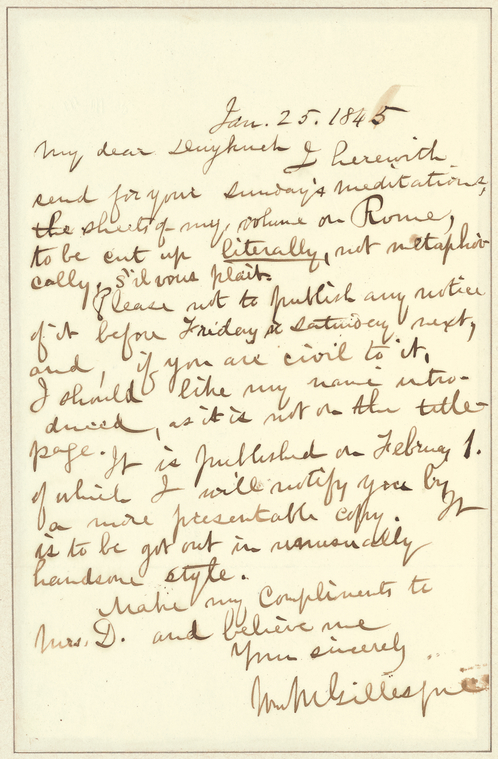 Jan. 25. 1845
My dear Duyckinck I herewith
send for your Sunday's meditations,
the sheets of my volume on Rome,
to be cut up literally, not metaphori
cally, s'il vous plait.
Please not to publish any notice
of it before Friday or Saturday next,
and, if you are civil to it,
I should like my name intro-
duced, as it is not on the title-
page. It is published on February 1.
of which I will notify you by
a more presentable copy. It
is to be got out in unusually
handsome style.
Make my compliments to
Mrs. D. and believe me
Yours sincerely
Wm M Gillespie